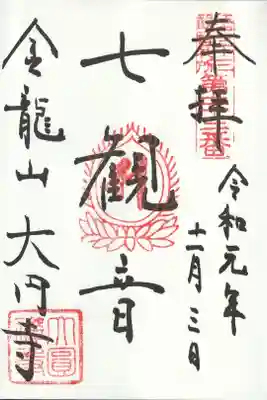 奉拝
令和元年
十一月三日
七観音
金龍山大円寺